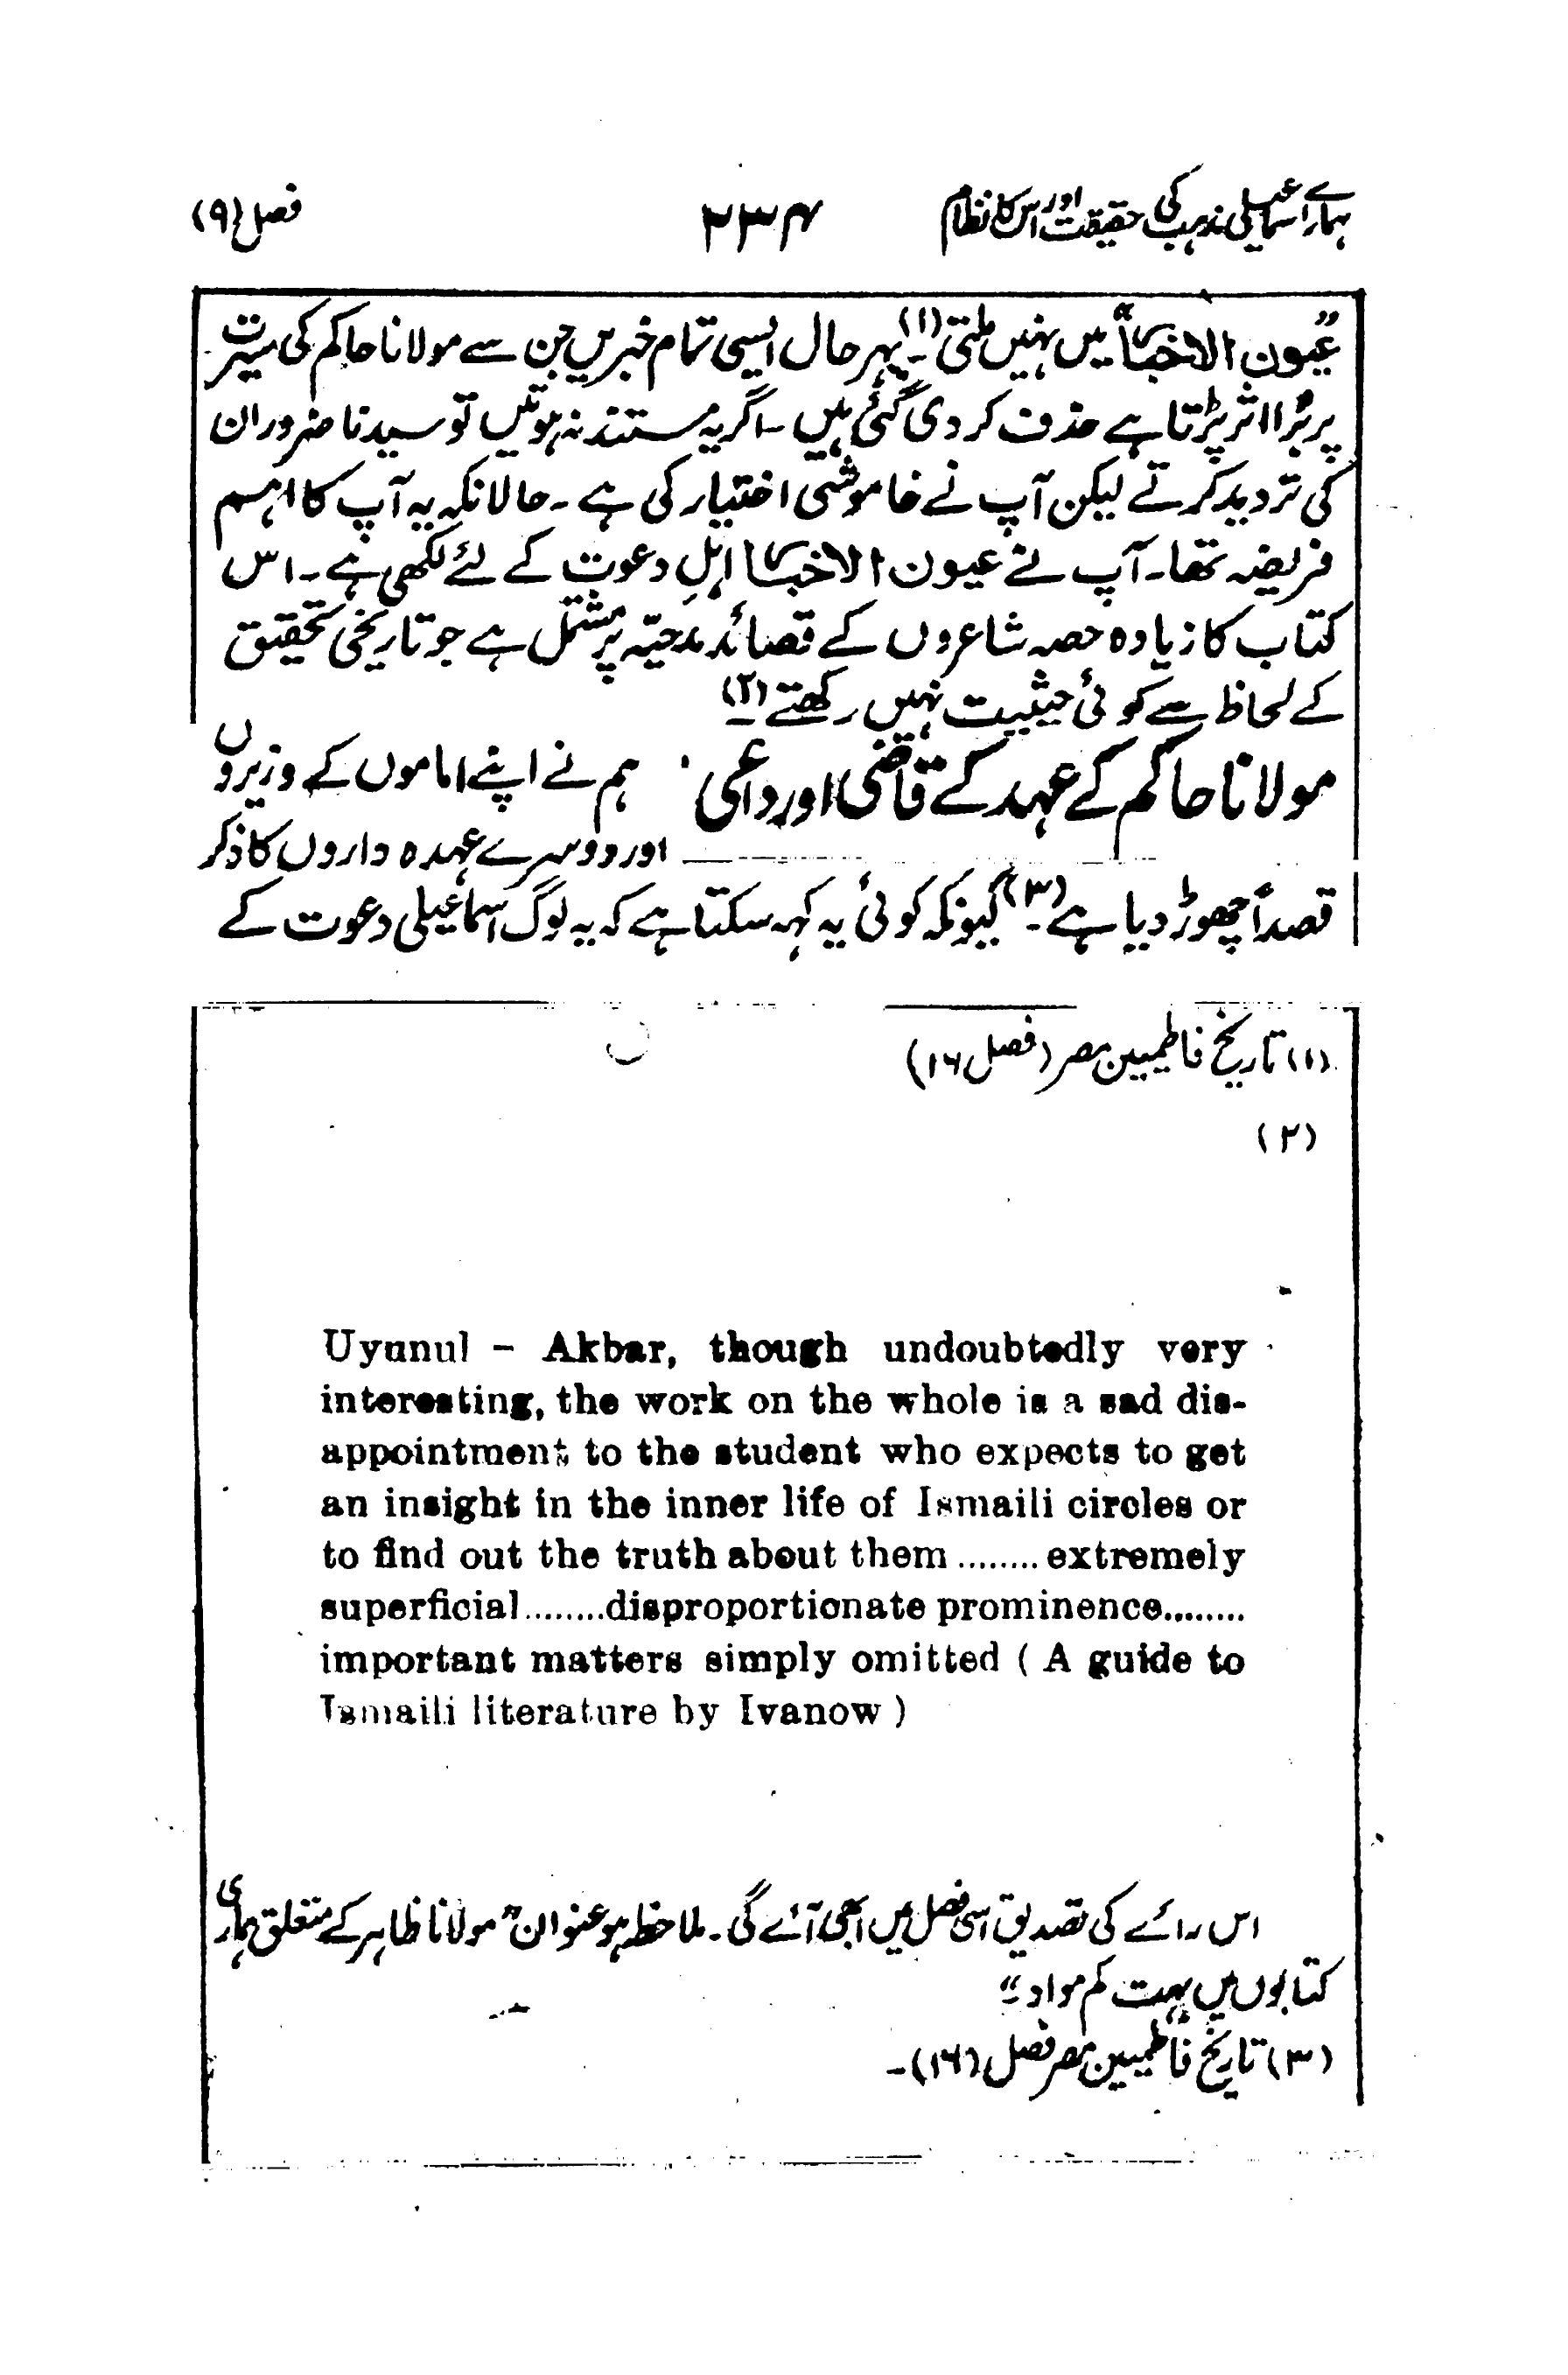 ہمارے اسماعیلی مذہب کی حقیقت اور اس کا نظام ۲۳۴ فصل (۹)
”عیون الاخبار“ میں نہیں ملتی (۱)۔ بہر حال ایسی تمام خبریں جن سے مولانا حاکم کی سیرت
پر بُرا اثر پڑتا ہے حذف کر دی گئی ہیں ۔ اگر یہ مستند نہ ہوتیں تو سیدنا ضرور ان
کی تردید کرتے لیکن آپ نے خاموشی اختیار کی ہے ۔ حالانکہ یہ آپ کا اہم
فریضہ تھا۔ آپ نے عیون الاخبار اہلِ دعوت کے لئے لکھی ہے ۔ اس
کتاب کا زیادہ حصہ شاعروں کے قصائد مدحیّہ پر مشتمل ہے جو تاریخی تحقیق
کے لحاظ سے کوئی حیثیت نہیں رکھتے (۲)۔
مولانا حاکم کے عہد کے قاضی اور داعی ہم نے اپنے اماموں کے وزیروں
اور دوسرے عہدہ داروں کا ذکر
قصداً چھوڑ دیا ہے (۳)۔ کیونکہ کوئی یہ کہہ سکتا ہے کہ یہ لوگ اسماعیلی دعوت کے
(۱) تاریخ فاطمیین مصر (فصل ۱۶)
(۲)
Uyunul – Akbar, though undoubtedly very
interesting, the work on the whole is a sad dis-
appointment to the student who expects to get
an insight in the inner life of Ismaili circles or
to find out the truth about them ........ extremely
superficial ........disproportionate prominence........
important matters simply omitted ( A guide to
Ismaili literature by Ivanow )
اس رائے کی تصدیق اسی فصل میں ابھی آئے گی ۔ ملاحظہ ہو عنوان ”مولانا ظاہر کے متعلق ہماری
کتابوں میں بہت کم مواد“۔
(۳) تاریخ فاطمیین مصر فصل (۱۶)۔